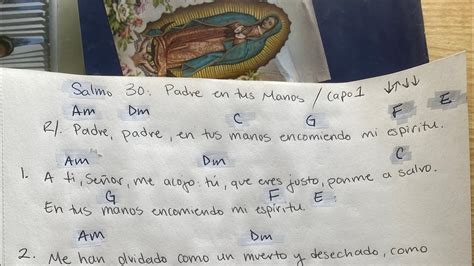 Salmo 30: Padre en tus Manos / capo 1 ↓↑↓↓
Am Dm C G F E
R/. Padre, padre, en tus manos encomiendo mi espíritu.
Am Dm C
1. A ti, Señor, me acojo: tú, que eres justo, ponme a salvo.
G F E
En tus manos encomiendo mi espíritu.
Am Dm
2. Me han olvidado como un muerto y desechado, como